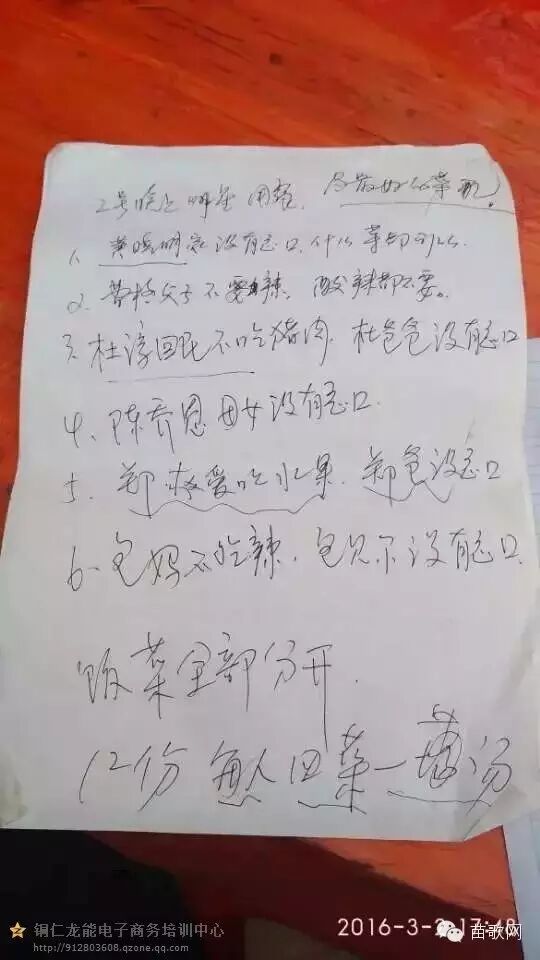 2号晚上明星用餐. 局最好的菜肴!
1、黄晓明家没有忌口.什么菜都可以.
2、曹格父子不要辣、酸辣都不要。
3、杜淳回民不吃猪肉.杜爸爸没有忌口
4、陈乔恩母女没有忌口.
5、郑恺爱吃水果.郑爸没忌口
6、包妈不吃辣.包贝尔没有忌口.
饭菜全部分开.
12份 每人四菜一汤
铜仁龙能电子商务培训中心
http://912803608.qzone.qq.com/
2016-3-2 17:48
苗歌网